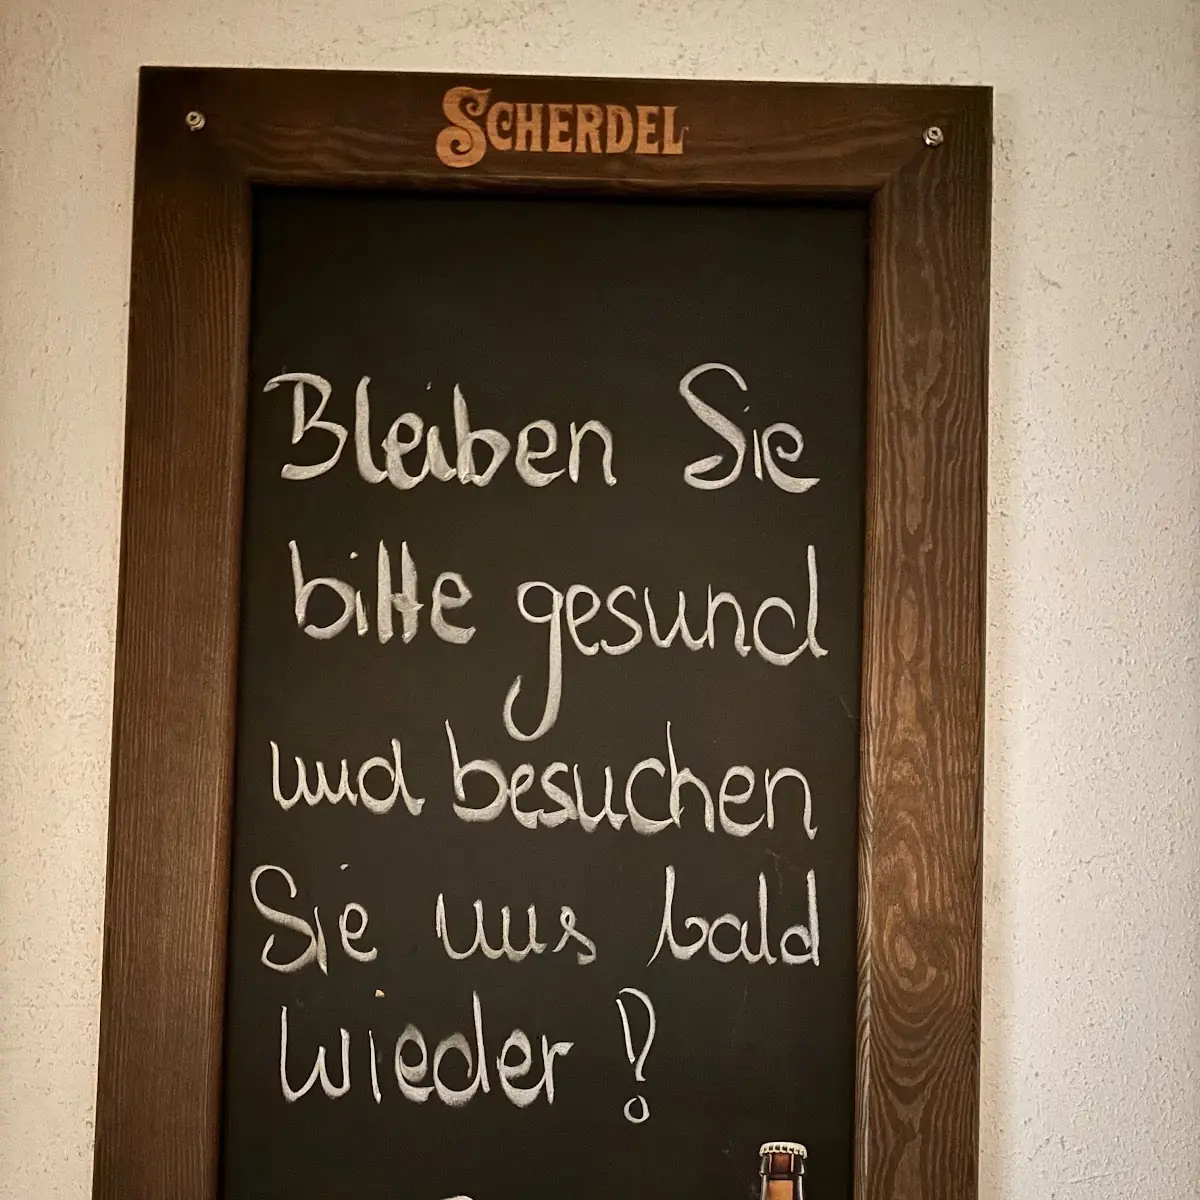 SCHERDEL
Bleiben Sie
bitte gesund
und besuchen
Sie uns bald
wieder!